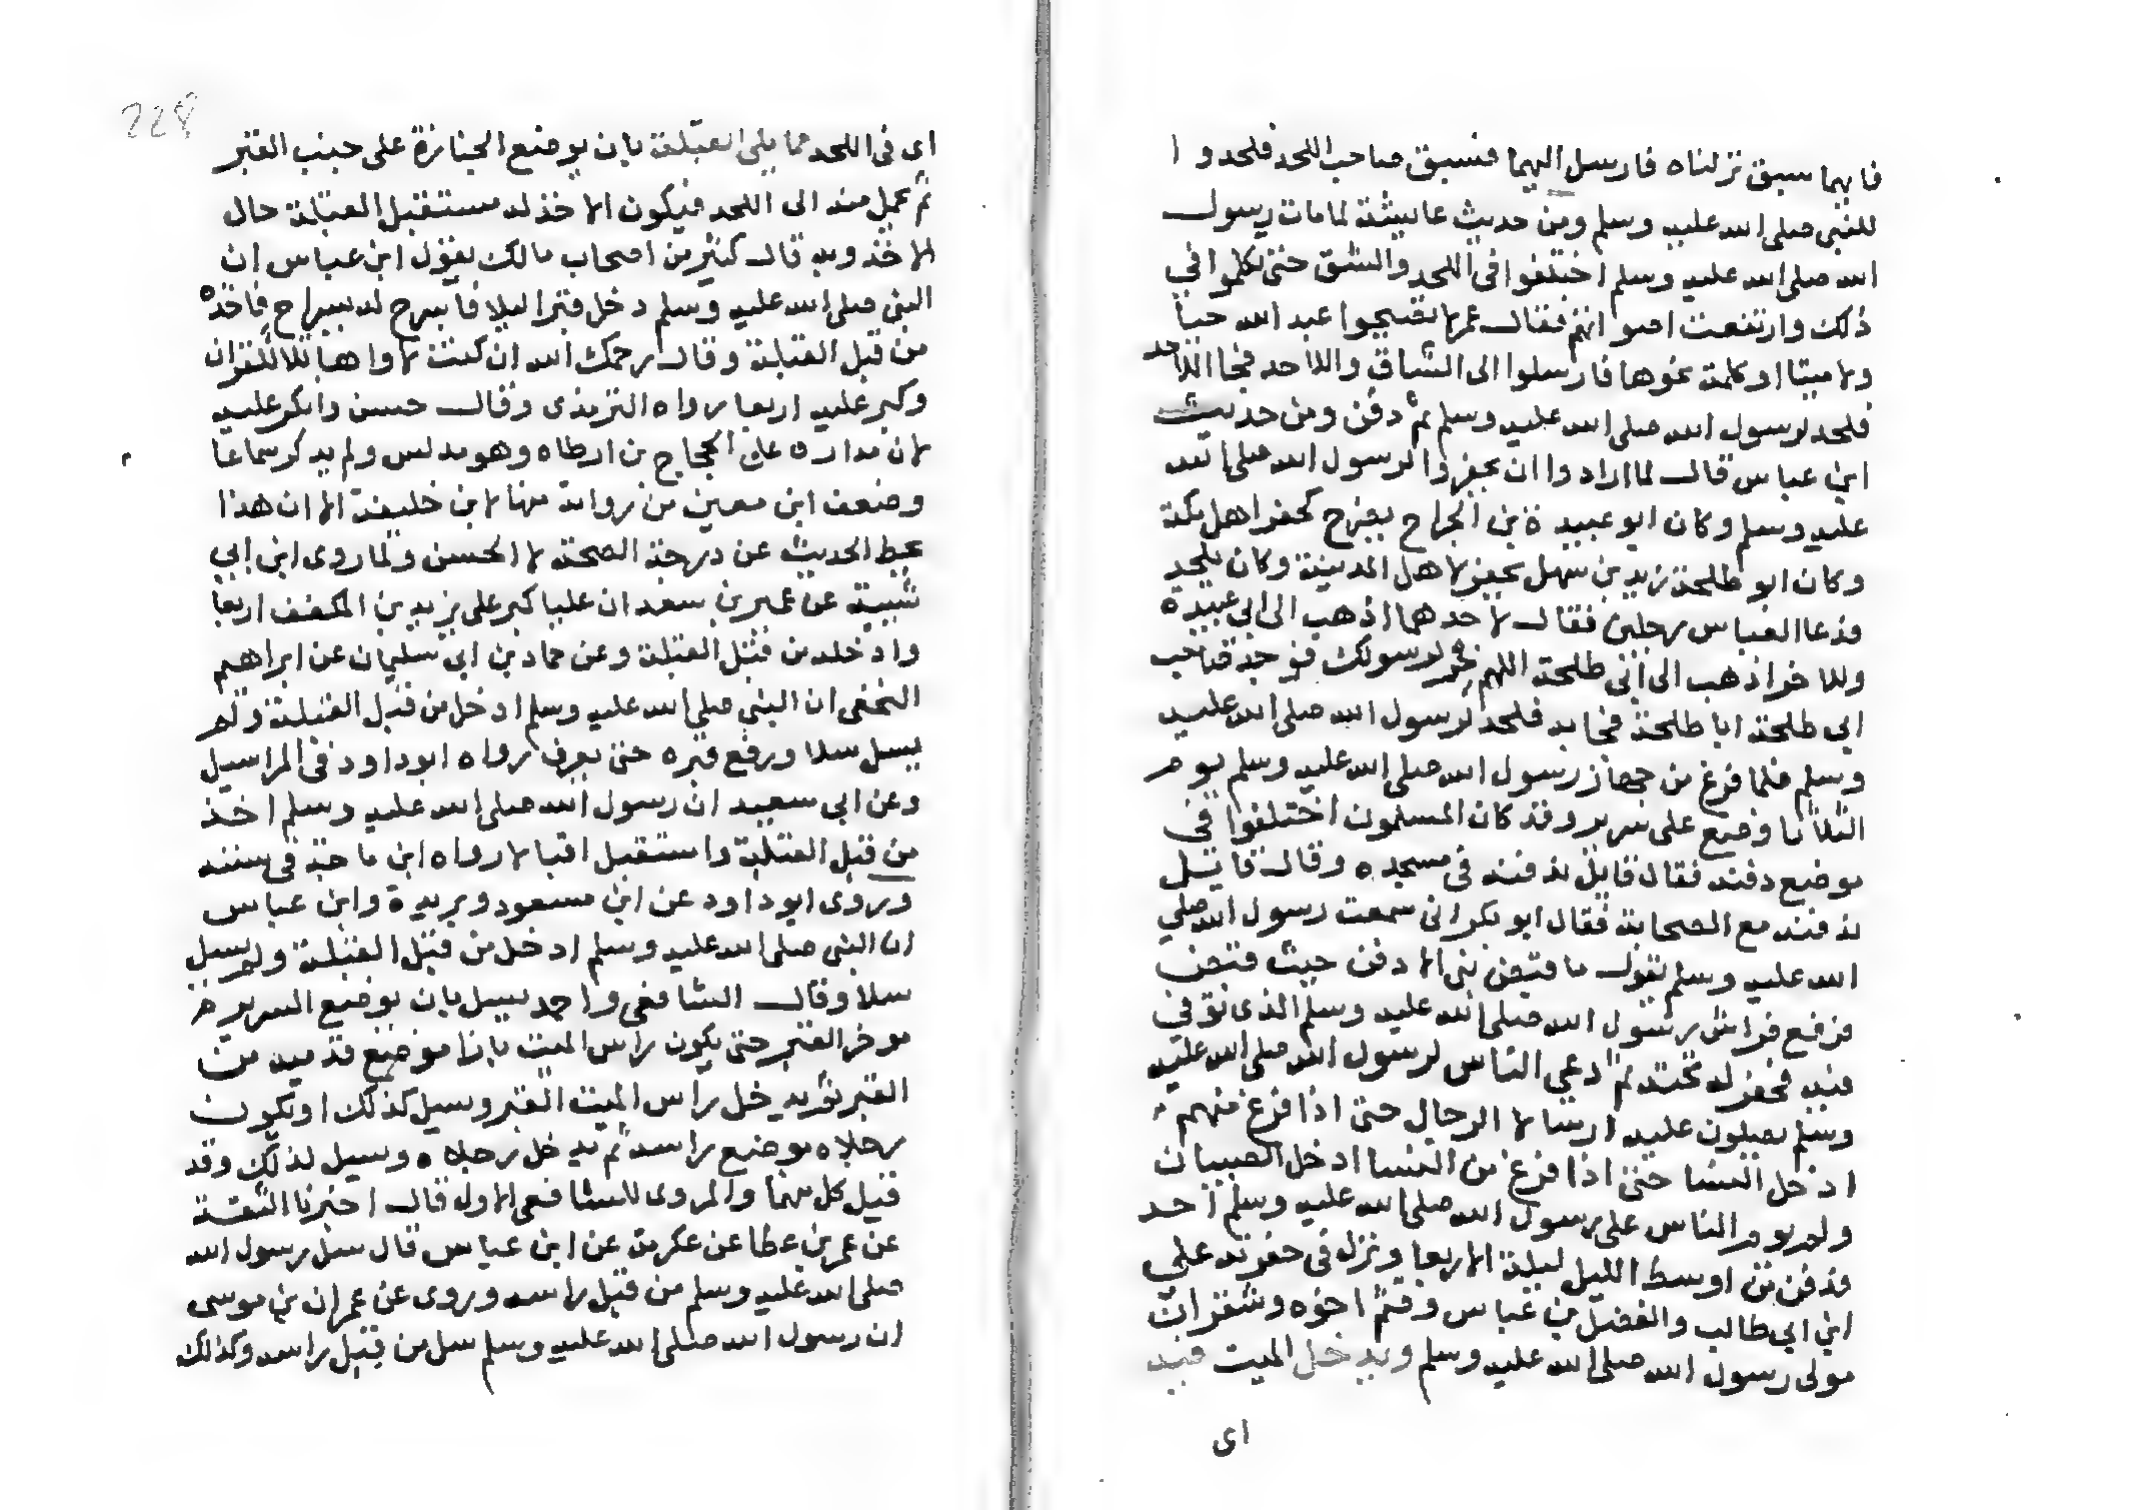 فايهما سبق تركناه فارسل اليهما فسبق صاحب اللحد فلحدوا
للنبي صلى الله عليه وسلم ومن حديث عايشة لما مات رسول
الله صلى الله عليه وسلم اختلفوا في اللحد والشق حتى تكلموا في
ذلك وارتفعت اصواتهم فقال عمر لا تضجوا عند الله حيا
ولا ميتا او كلمة نحوها فارسلوا الى الشاق واللاحد فجا اللاحد
فلحد لرسول الله صلى الله عليه وسلم ثم دفن ومن حديث
ابن عباس قال لما ارادوا ان يحفروا لرسول الله صلى الله
عليه وسلم وكان ابو عبيدة بن الجراح يضرح كحفر اهل مكة
وكان ابو طلحة زيد بن سهل يحفر لاهل المدينة وكان يلحد
فدعا العباس رجلين فقال لاحدهما اذهب الى ابي عبيدة
وللاخر اذهب الى ابي طلحة اللهم خر لرسولك فوجد صاحب
ابي طلحة ابا طلحة فجا به فلحد لرسول الله صلى الله عليه
وسلم فلما فرغ من جهاز رسول الله صلى الله عليه وسلم يوم
الثلاثا وضع على سريره وقد كان المسلمون اختلفوا في
موضع دفنه فقال قايل ندفنه في مسجده وقال قايل
ندفنه مع الصحابة فقال ابو بكر اني سمعت رسول الله صلى
الله عليه وسلم يقول ما قبض نبي الا دفن حيث قبض
فرفع فراش رسول الله صلى الله عليه وسلم الذي توفي
فيه فحفر له تحته ثم دعي الناس لرسول الله صلى الله عليه
وسلم يصلون عليه ارسالا الرجال حتى اذا فرغ منهم
ادخل النسا حتى اذا فرغ من النسا ادخل الصبيان
ولم يوم الناس على رسول الله صلى الله عليه وسلم احد
فدفن من اوسط الليل ليلة الاربعا ونزل في حفرته علي
ابن ابي طالب والفضل بن عباس وقثم اخوه وشقران
مولى رسول الله صلى الله عليه وسلم ويدخل الميت فيه
اى
228
اى في اللحد مما يلى القبلة بان يوضع الجنازة على جنب القبر
ثم يحمل منه الى اللحد فيكون الاخذ له مستقبل القبلة حال
الاخذ وبه قال كثير من اصحاب مالك لقول ابن عباس ان
النبي صلى الله عليه وسلم دخل قبرا ليلا فاسرج له سراج فاخذه
من قبل القبلة وقال رحمك الله ان كنت لاواها تلا للقران
وكبر عليه اربعا رواه الترمذي وقال حسن وانكر عليه
لان مداره على الحجاج بن ارطاه وهو مدلس ولم يذكر سماعا
وضعف ابن معين من رواته منهال بن خليفة الا ان هذا
يحط الحديث عن درجة الصحة لا الحسن ولما روى ابن ابي
شيبة عن عمير بن سعد ان عليا كبر على يزيد بن المكفف اربعا
وادخله من قبل القبلة وعن حماد بن ابي سليمان عن ابراهم
النخعي ان النبي صلى الله عليه وسلم ادخل من قبل القبلة ولم
يسل سلا ورفع قبره حتى يعرف رواه ابو داود في المراسيل
وعن ابي سعيد ان رسول الله صلى الله عليه وسلم اخذ
من قبل القبلة واستقبل اقبالا رواه ابن ماجة في سننه
وروى ابو داود عن ابن مسعود وبريدة وابن عباس
ان النبي صلى الله عليه وسلم ادخل من قبل القبلة ولم يسل
سلا وقال الشافعي واحمد يسل بان يوضع السرير
موخر القبر حتى يكون راس الميت بازا موضع قدميه من
القبر ثم يدخل راس الميت القبر وسيل كذلك او تكون
رجلاه موضع راسه ثم يدخل رجلاه وسيل لذلك وقد
قيل كل منهما والمروى للشافعي الاول قال اخبرنا الثقة
عن عمر بن عطا عن عكرمة عن ابن عباس قال سل رسول الله
صلى الله عليه وسلم من قبل راسه وروى عن عمران بن موسى
ان رسول الله صلى الله عليه وسلم سل من قبل راسه وكذلك